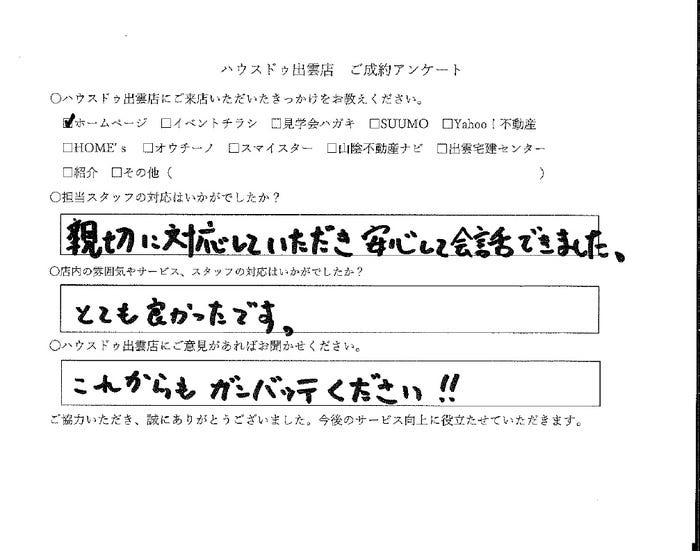 ハウスドゥ出雲店　ご成約アンケート
○ハウスドゥ出雲店にご来店いただいたきっかけをお教えください。
☑ホームページ　□イベントチラシ　□見学会ハガキ　□SUUMO　□Yahoo！不動産
□HOME's　□オウチーノ　□スマイスター　□山陰不動産ナビ　□出雲宅建センター
□紹介　□その他（　　　　　　　　　　　　　　　　　　　　　　　　　　　）
○担当スタッフの対応はいかがでしたか？
親切に対応していただき安心して会話できました。
○店内の雰囲気やサービス、スタッフの対応はいかがでしたか？
とても良かったです。
○ハウスドゥ出雲店にご意見があればお聞かせください。
これからもガンバッテください!!
ご協力いただき、誠にありがとうございました。今後のサービス向上に役立たせていただきます。